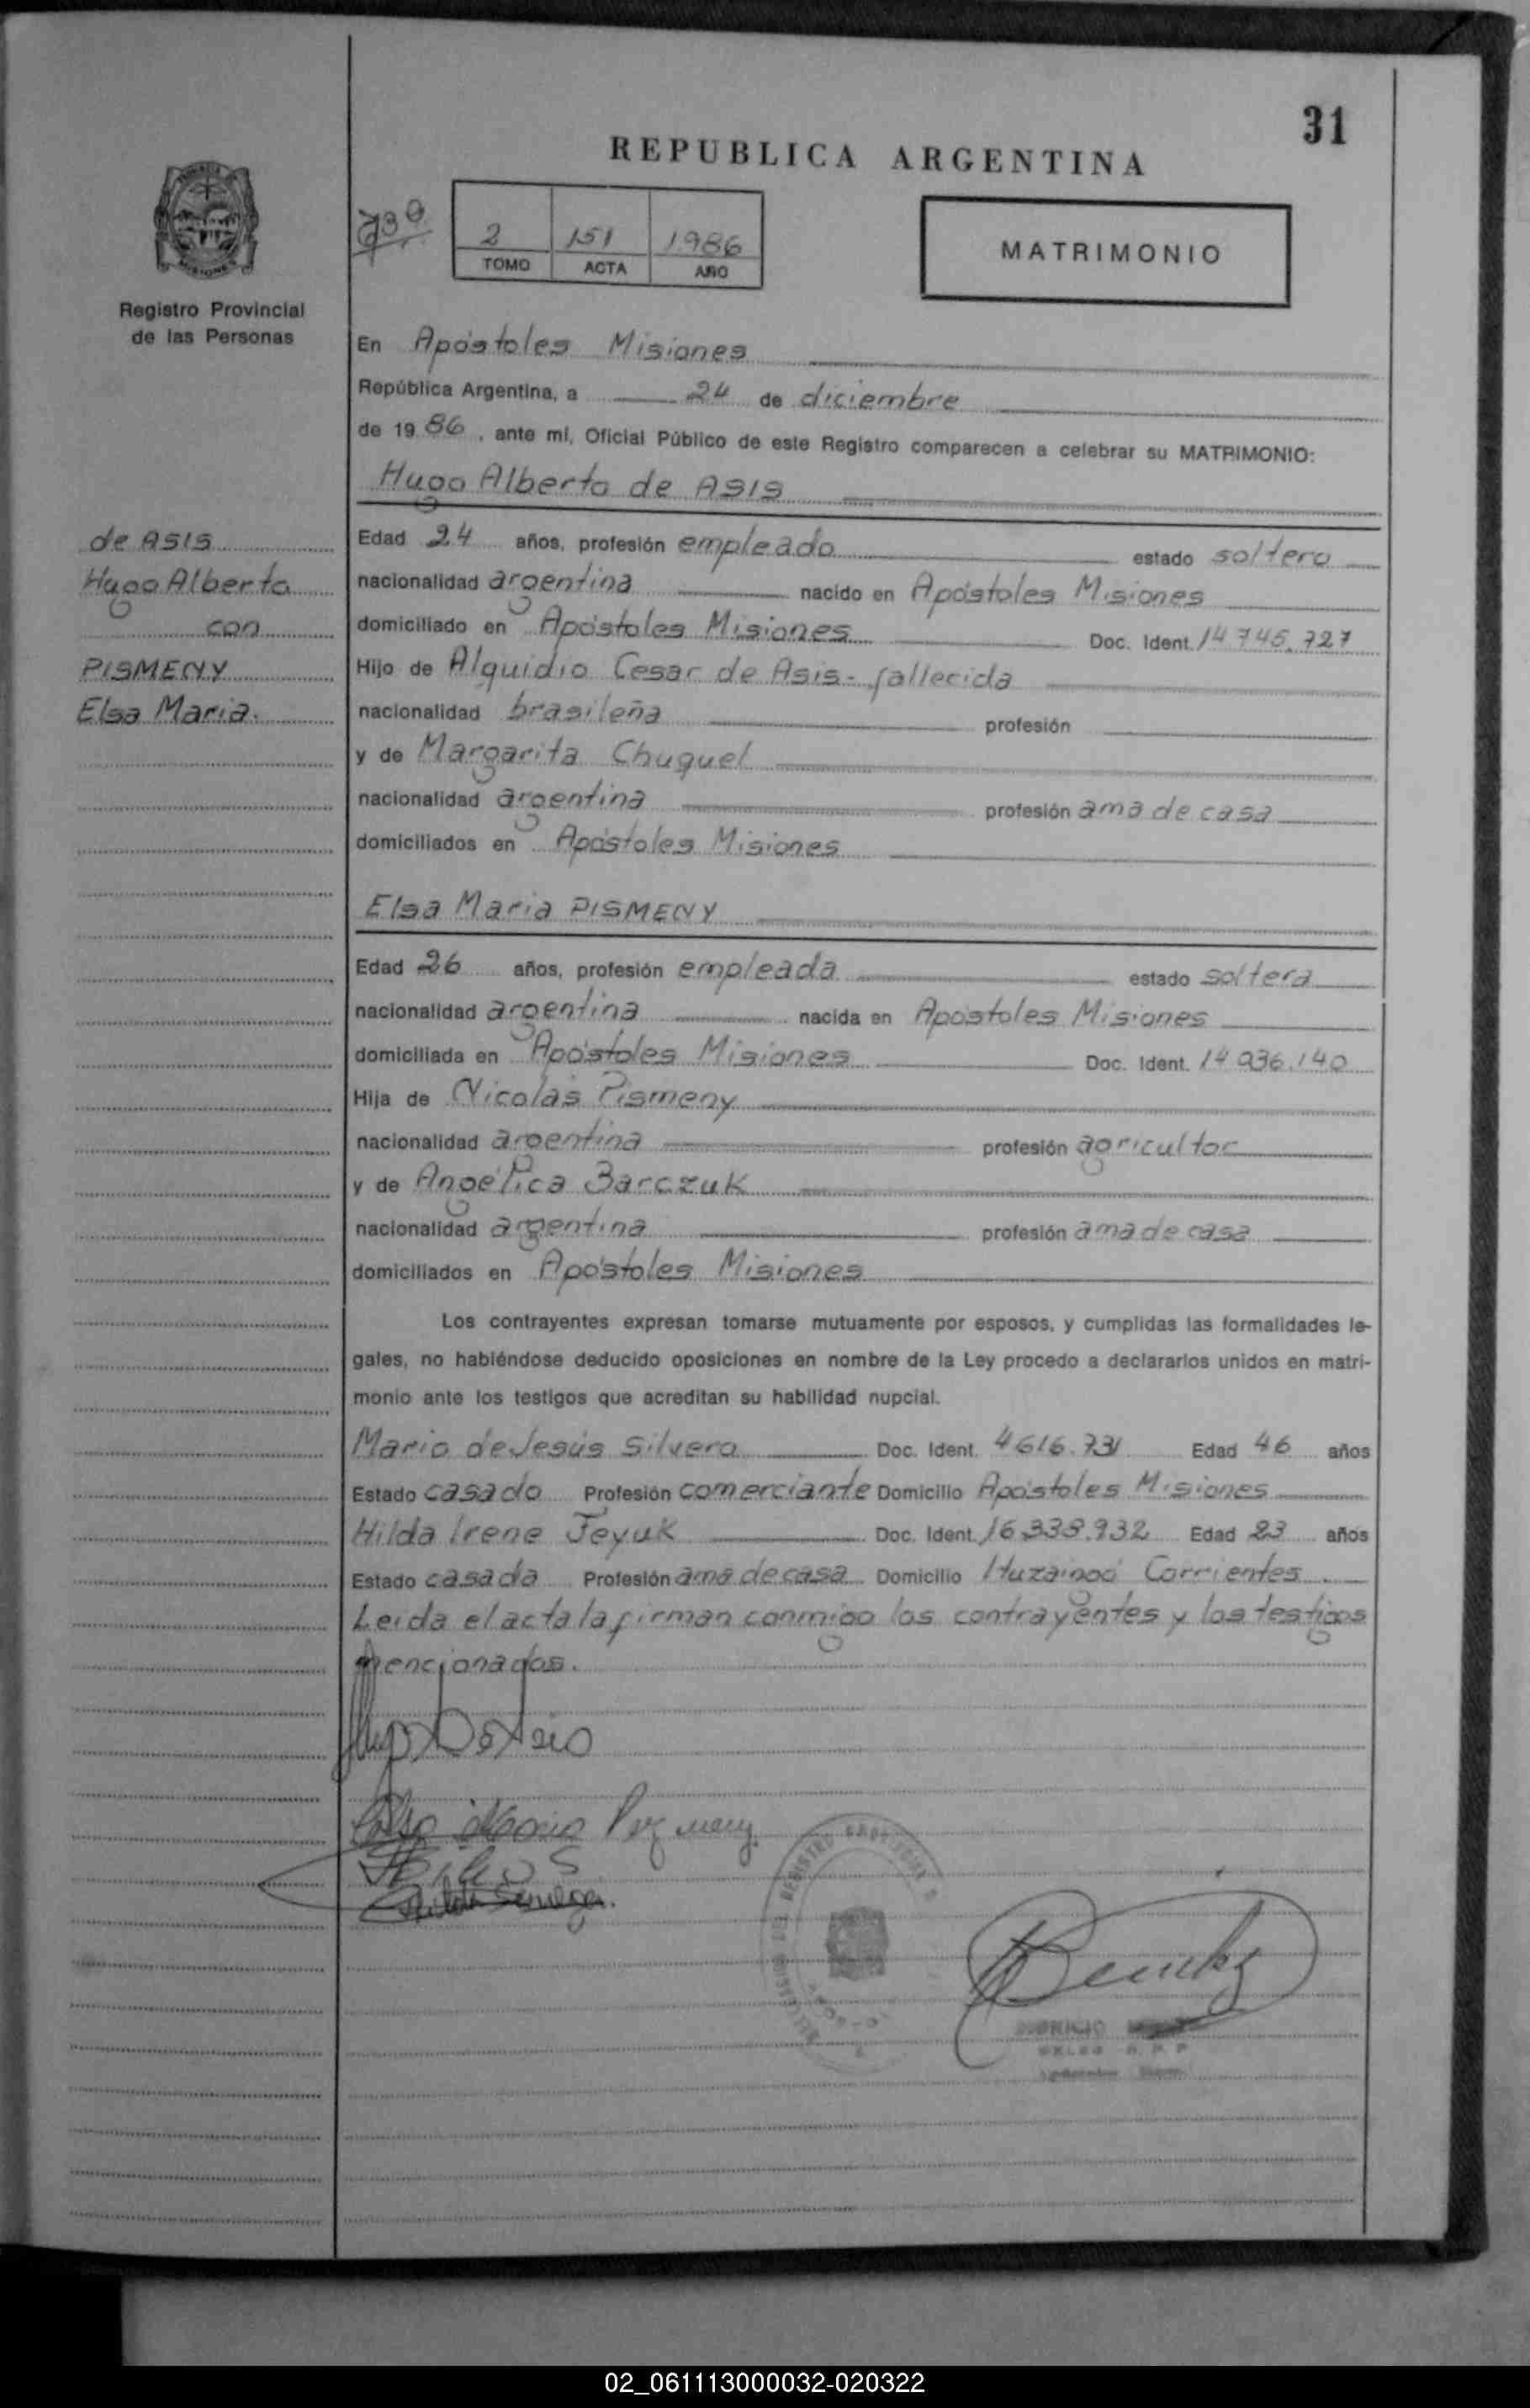 31
REPUBLICA ARGENTINA
2 151 1986
TOMO ACTA AÑO
MATRIMONIO
Registro Provincial
de las Personas
En Apóstoles Misiones
República Argentina, a 24 de diciembre
de 19 86, ante mí, Oficial Público de este Registro comparecen a celebrar su MATRIMONIO:
Hugo Alberto de ASIS
de ASIS
Hugo Alberto
con
PISMENY
Elsa Maria.
Edad 24 años, profesión empleado estado soltero
nacionalidad argentina nacido en Apóstoles Misiones
domiciliado en Apóstoles Misiones Doc. Ident. 14 745.727
Hijo de Alquidio Cesar de Asis- fallecido
nacionalidad brasileña profesión
y de Margarita Chuquel
nacionalidad argentina profesión ama de casa
domiciliados en Apóstoles Misiones
Elsa Maria PISMENY
Edad 26 años, profesión empleada estado soltera
nacionalidad argentina nacida en Apóstoles Misiones
domiciliada en Apóstoles Misiones Doc. Ident. 14 036.140
Hija de Nicolás Pismeny
nacionalidad argentina profesión agricultor
y de Angélica Barczuk
nacionalidad argentina profesión ama de casa
domiciliados en Apóstoles Misiones
Los contrayentes expresan tomarse mutuamente por esposos, y cumplidas las formalidades le-
gales, no habiéndose deducido oposiciones en nombre de la Ley procedo a declararlos unidos en matri-
monio ante los testigos que acreditan su habilidad nupcial.
Mario de Jesús Silvero Doc. Ident. 4616.731 Edad 46 años
Estado casado Profesión comerciante Domicilio Apóstoles Misiones
Hilda Irene Jeyuk Doc. Ident. 16 338.932 Edad 23 años
Estado casada Profesión ama de casa Domicilio Ituzaingó Corrientes
Leída el acta la firman conmigo los contrayentes y los testigos
mencionados.
02_061113000032-020322